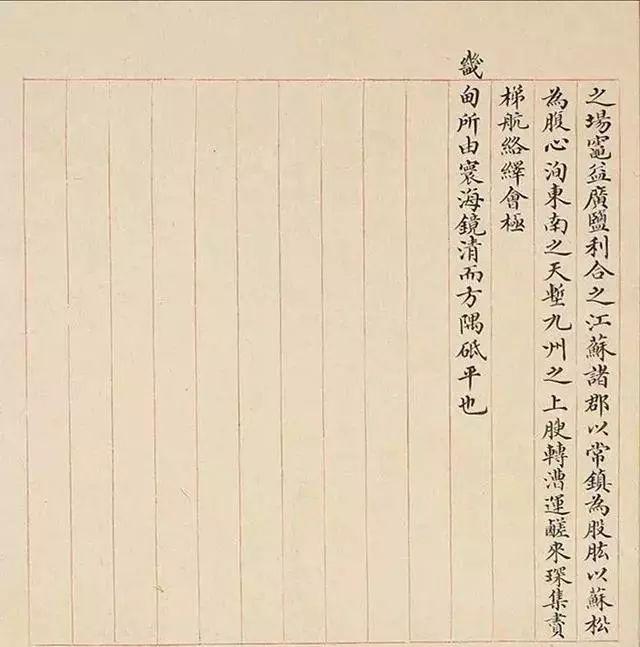 之場竈益廣鹽利合之江蘇諸郡以常鎮為股肱以蘇松
為腹心洵東南之天塹九州之上腴轉漕運鹺來琛集賮
梯航絡繹會極
畿甸所由寰海鏡清而方隅砥平也